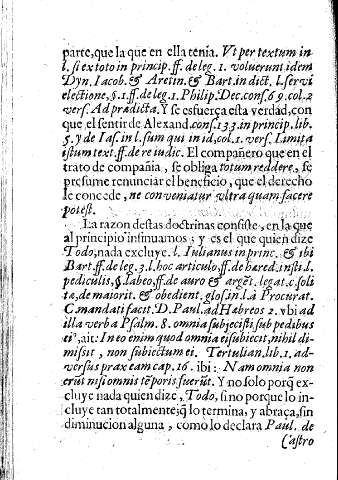 parte, que la que en ella tenia. Vt per textum in
l. si ex toto in princip. ff. de leg. 1. voluerunt idem
Dyn. Iacob. & Aretin. & Bart. in dict. l. servi
electione, §. 1. ff. de leg. 1. Philip. Dec. cons. 69. col. 2
vers. Ad prædicta. Y se esfuerça esta verdad, con
que el sentir de Alexand. cons. 133. in princip. lib.
5. y de Ias. in l. sum qui in id, col. 1. vers. Limita
istum text. ff. de re iudic. El compañero que en el
trato de compañia, se obliga totum reddere, se
presume renunciar el beneficio, que el derecho
le concede, ne conveniatur vltra quam facere
potest.
La razon destas doctrinas consiste, en la que
al principio insinuamos; y es el que quien dize
Todo, nada excluye. l. Iulianus in princ. & ibi
Bart. ff. de leg. 3. l. hoc articulo ff. de hæred. insti. l.
pediculis, §. labeo, ff. de auro & argēt. legat. c. soli
tæ, de maiorit. & obedient. glos. in l. à Procurat.
C. mandati facit D. Paul. ad Hebreos 2. vbi ad
illa verba Psalm. 8. omnia subjecisti sub pedibus
ei9, ait: In eo enim quod omnia ei subiecit, nihil di-
misit, non subiectum ei. Tertulian. lib. 1. ad-
versus praxeam cap. 16. ibi: Nam omnia non
erūt nisi omnis tēporis fuerūt. Y no solo porq̄ ex-
cluye nada quien dize, Todo, si no porque lo in-
cluye tan totalmente; q̄ lo termina, y abraça, sin
diminucion alguna, como lo declara Paul. de
Castro